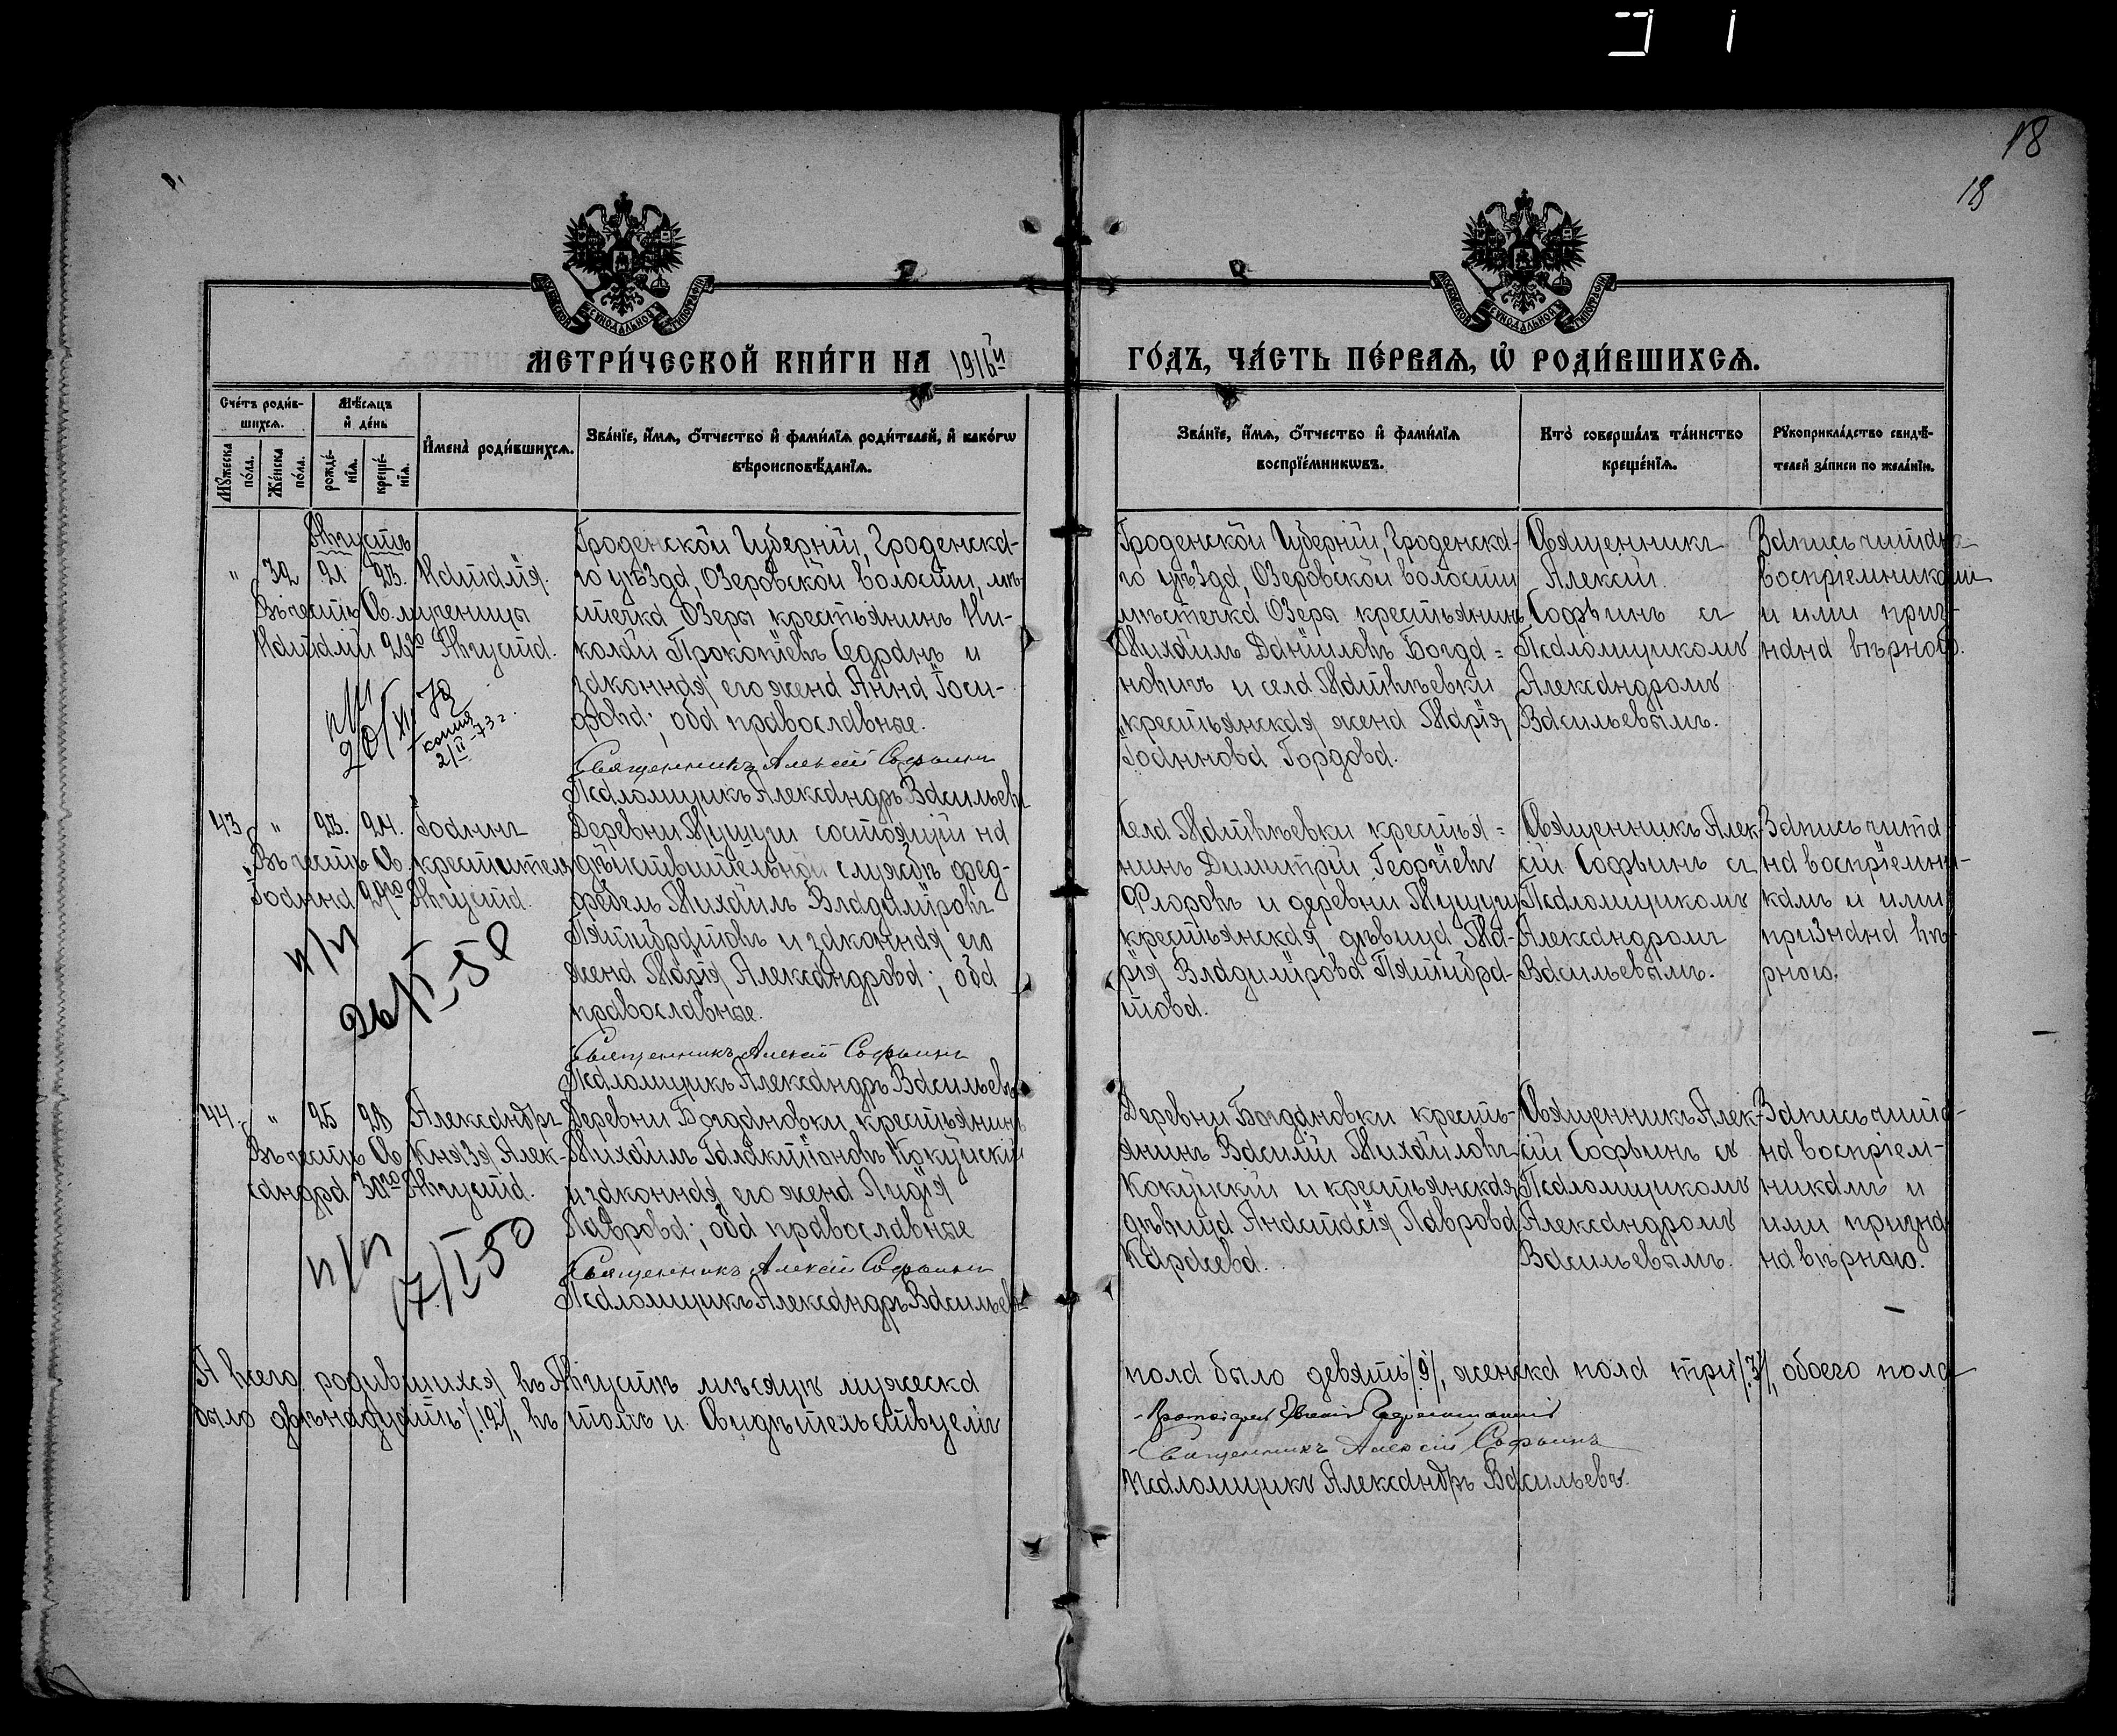 18
18
МЕТРИ́ЧЕСКОЙ КНИ́ГИ НА 1916й ГО́ДЪ, ЧА́СТЬ ПЕ́РВАѦ, Ѡ҆ РОДИ́ВШИХСѦ.
Сче́тъ роди́в-
шихсѧ.
Мꙋ́жеска по́ла.
Же́нска по́ла.
Мѣ́сѧцъ
и҆ де́нь
рожде́-
нїѧ.
креще́-
нїѧ.
И҆мена̀ роди́вшихсѧ.
Зва́нїе, и҆́мѧ, ѻ҆́тчество и҆ фами́лїѧ роди́телей, и҆ како́гѡ
вѣроисповѣ́данїѧ.
Зва́нїе, и҆́мѧ, ѻ҆́тчество и҆ фами́лїѧ
воспрїе́мникѡвъ.
Кто̀ соверша́лъ та́инство
креще́нїѧ.
Рꙋкоприкла́дство свидѣ́-
телей за́писи по жела́нїю.
Августъ
" 32 21 23. Наталiя.
Въ честь Св. мученицы
Наталiи 26го Августа.
20/XI 72
копия
2/II-73 г.
Гроденской Губернiи, Гроденска-
го уѣзда, Озеровской волости, мѣ-
стечка Озеры крестьянинъ Ни-
колай Прокопiевъ Седранъ и
законная его жена Анна Iоси-
фова; оба православные.
Священникъ Алексiй Софьинъ
Псаломщикъ Александръ Васильевъ
Гроденской Губернiи, Гроденска-
го уѣзда, Озеровской волости
мѣстечка Озеры крестьянинъ
Михаилъ Данiиловъ Богда=
новичъ и села Матвѣевки
крестьянская жена Марiя
Iоаннова Гордова.
Священникъ
Алексiй
Софьинъ съ
Псаломщикомъ
Александромъ
Васильевымъ.
Запись читана
воспрiемниками
и ими приз-
нана вѣрною.
43. " 23. 24. Iоаннъ
Въ честь Св. крестителя
Iоанна 29го Августа.
и/п
26/I-50
Деревни Мущуи состоящiй на
дѣйствительной службѣ фельд-
фебель Михаилъ Владимiровъ
Пятибратовъ и законная его
жена Марiя Александрова; оба
православные.
Священникъ Алексiй Софьинъ
Псаломщикъ Александръ Васильевъ
Села Матвѣевки крестья=
нинъ Димитрiй Георгiевъ
Флоровъ и деревни Мущуи
крестьянская дѣвица Ма-
рiя Владимiрова Пятибра-
това.
Священникъ Алек-
сiй Софьинъ съ
Псаломщикомъ
Александромъ
Васильевымъ.
Запись чита-
на воспрiемни-
камъ и ими
признана вѣ-
рною.
44. " 25 28 Александръ
Въ честь Св. Князя Алек-
сандра 30го Августа.
и/п
17/I 50
Деревни Богдановки крестьянинъ
Михаилъ Галактiоновъ Кокуйскiй
и законная его жена Лидiя
Лаврова; оба православные
Священникъ Алексiй Софьинъ
Псаломщикъ Александръ Васильевъ
Деревни Богдановки кресть-
янинъ Василiй Михаиловъ
Кокуйскiй и крестьянская
дѣвица Анастасiя Лаврова
Карасева.
Священникъ Алек-
сiй Софьинъ съ
Псаломщикомъ
Александромъ
Васильевымъ.
Запись чита-
на воспрiем-
никамъ и
ими призна-
на вѣрною.
А всего родившихся въ Августѣ мѣсяцѣ мужеска пола было девять /9/, женска пола три /3/, обоего пола
было двѣнадцать /12/, въ томъ и Свидѣтельствуемъ
Протоiерей
Священникъ Алексiй Софьинъ
Псаломщикъ Александръ Васильевъ.